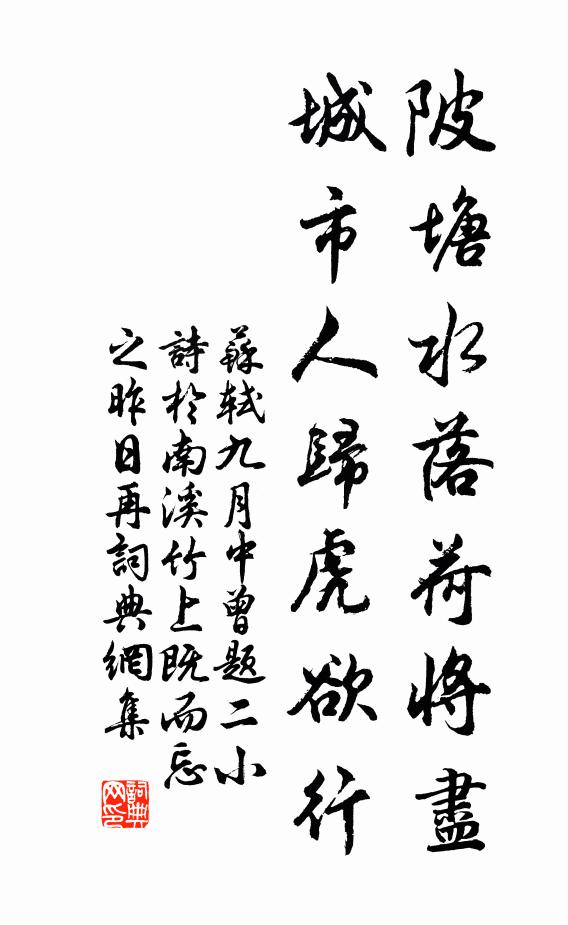 陂塘水落荷將盡
城市人歸虎欲行
蘇軾九月中曾题二小
詩於南溪竹上既而忘
之昨日再詞典網集
詞典
网印